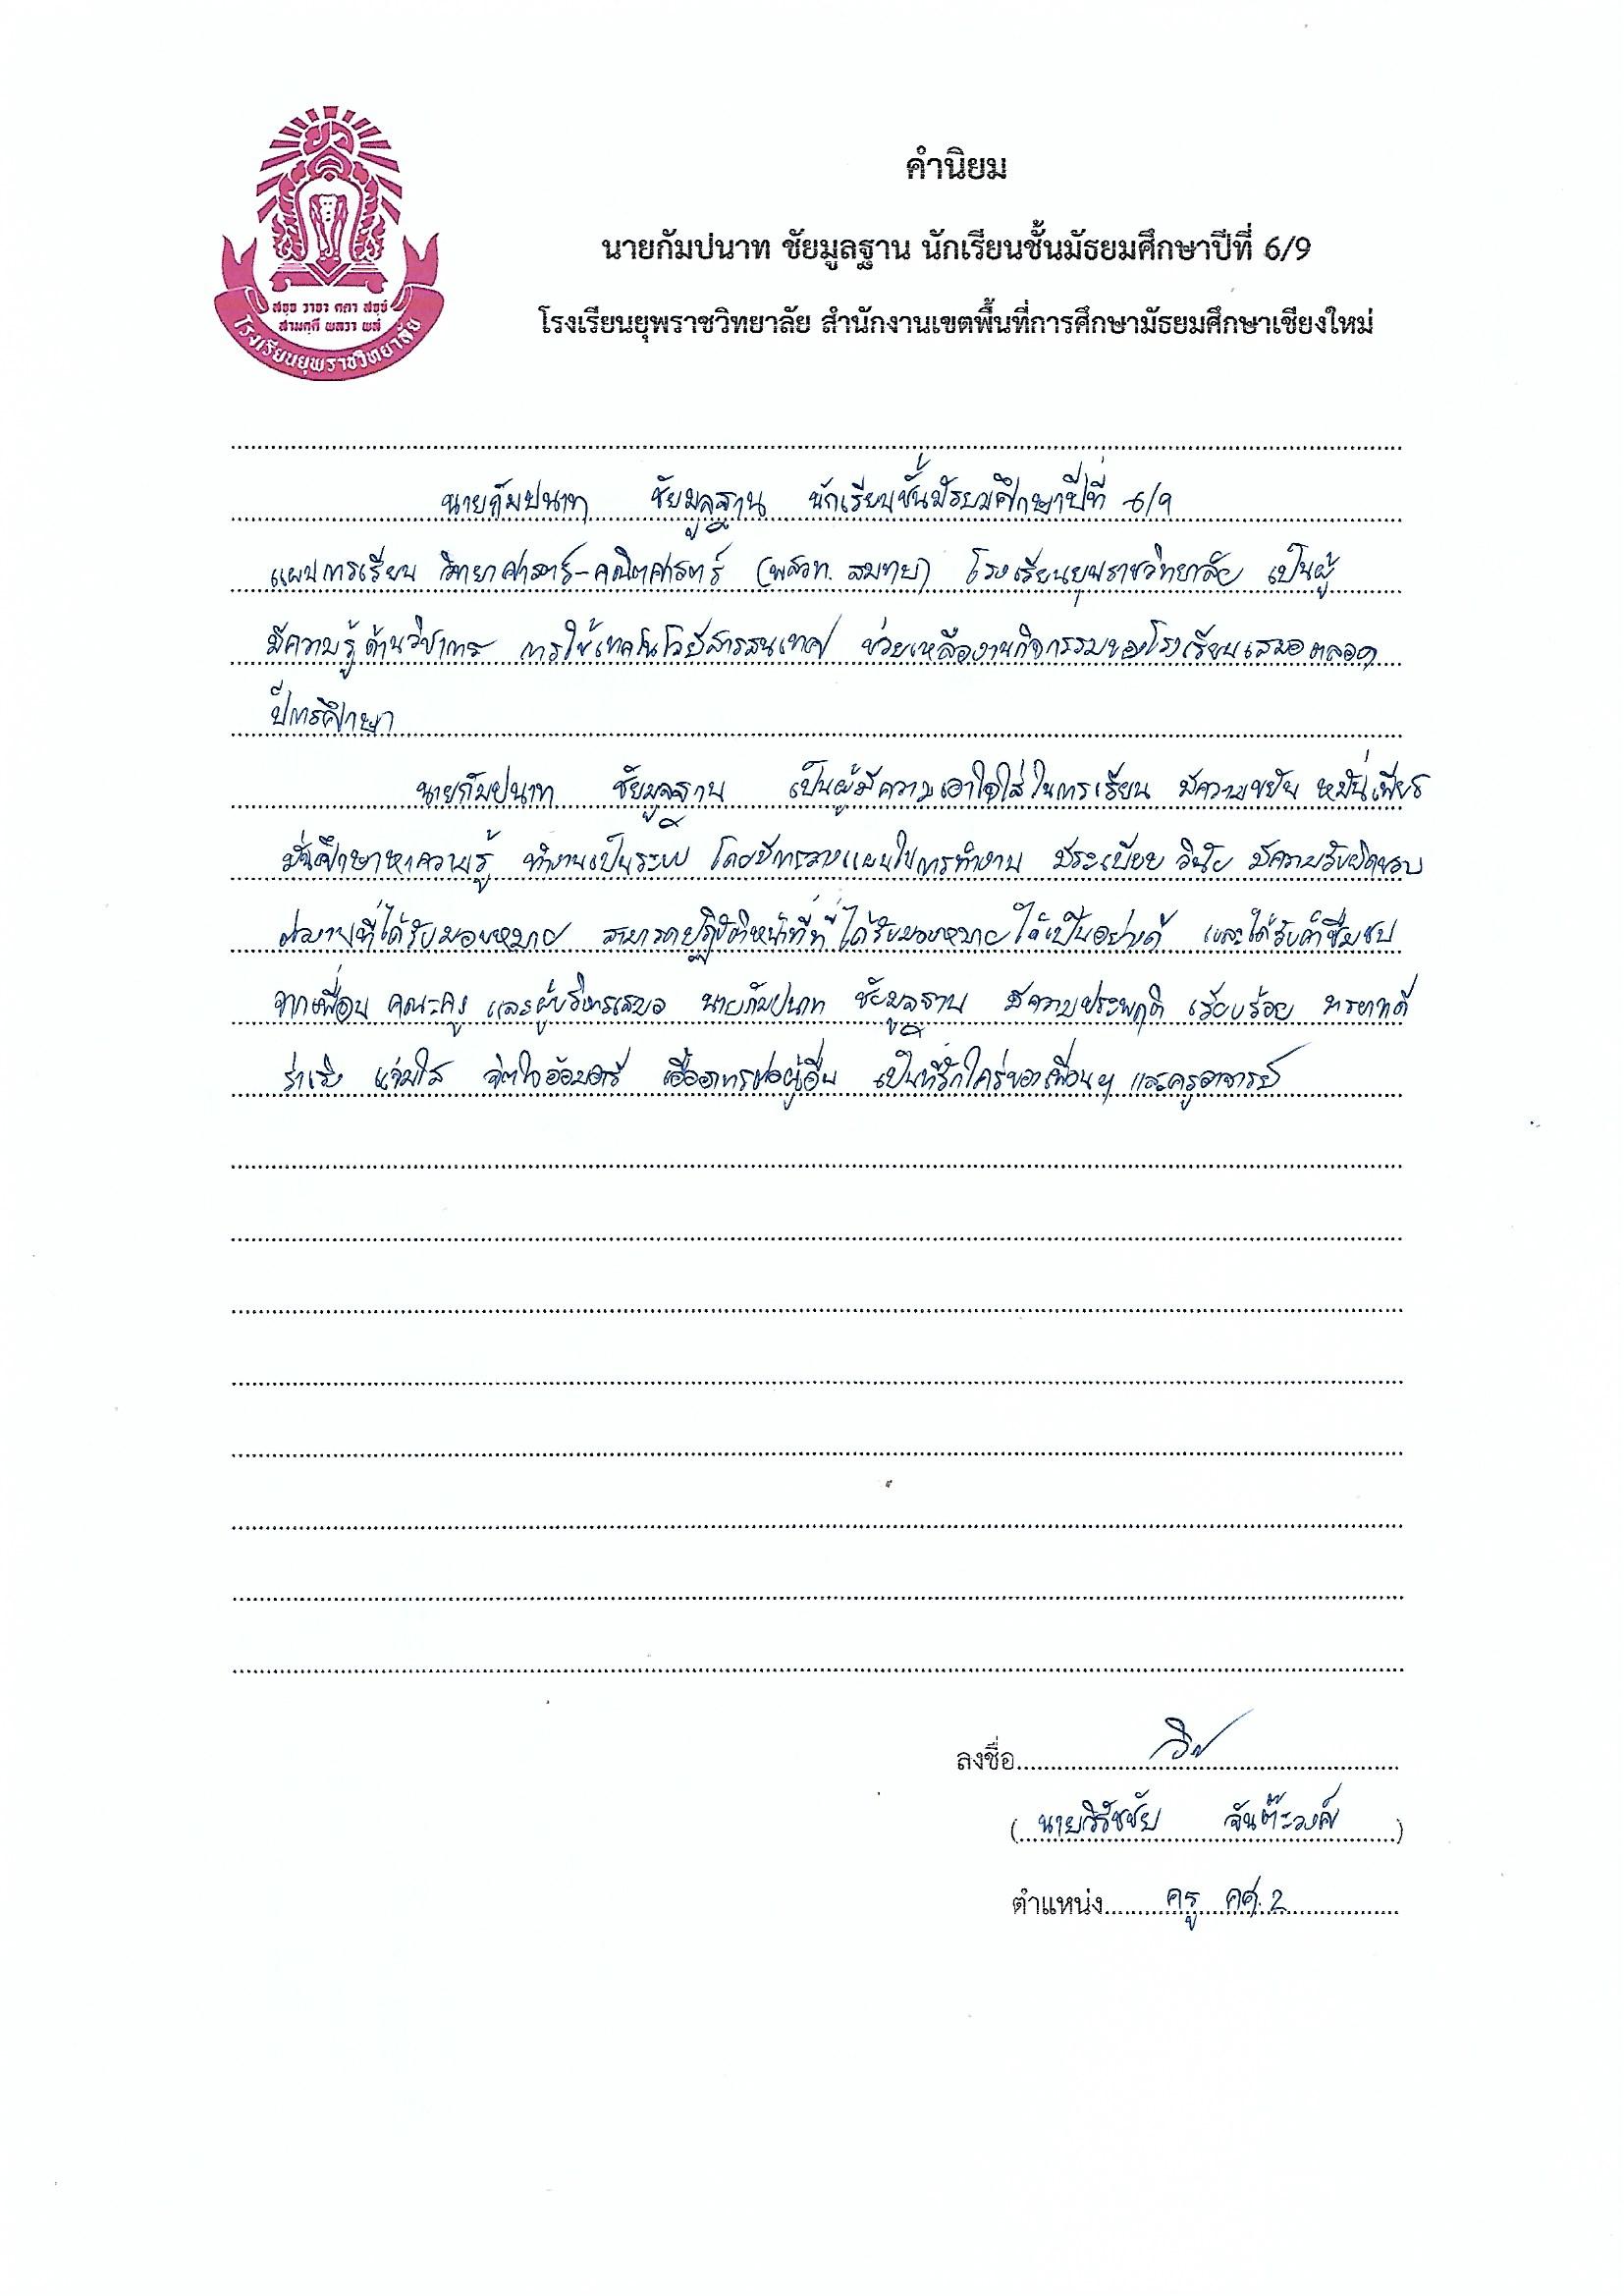 คำนิยม
นายกัมปนาท ชัยมูลฐาน นักเรียนชั้นมัธยมศึกษาปีที่ 6/9
โรงเรียนยุพราชวิทยาลัย สำนักงานเขตพื้นที่การศึกษามัธยมศึกษาเชียงใหม่
สจฺจํ วาจา สามคฺคี พลวา
โรงเรียนยุพราชวิทยาลัย
นายกัมปนาท ชัยมูลฐาน นักเรียนชั้นมัธยมศึกษาปีที่ 6/9
แผนการเรียน วิทยาศาสตร์-คณิตศาสตร์ (พสวท. สมทบ) โรงเรียนยุพราชวิทยาลัย เป็นผู้
มีความรู้ด้านวิชาการ การใช้เทคโนโลยีสารสนเทศ ช่วยเหลืองานกิจกรรมของโรงเรียนเสมอตลอด
ปีการศึกษา
นายกัมปนาท ชัยมูลฐาน เป็นผู้มีความเอาใจใส่ในการเรียน มีความขยัน หมั่นเพียร
มั่นศึกษาหาความรู้ ทำงานเป็นระบบ โดยมีการวางแผนในการทำงาน มีระเบียบ วินัย มีความรับผิดชอบ
ต่องานที่ได้รับมอบหมาย สามารถปฏิบัติหน้าที่ที่ได้รับมอบหมายได้เป็นอย่างดี และได้รับคำชื่นชม
จากเพื่อน คณะครู และผู้บริหารเสมอ นายกัมปนาท ชัยมูลฐาน มีความประพฤติ เรียบร้อย มารยาทดี
ร่าเริง แจ่มใส จิตใจอ้อมอารี เอื้ออาทรต่อผู้อื่น เป็นที่รักใคร่ของเพื่อนๆ และครูอาจารย์
ลงชื่อ
(นายวิรัชชัย จันต๊ะวงค์)
ตำแหน่ง ครู คศ.2